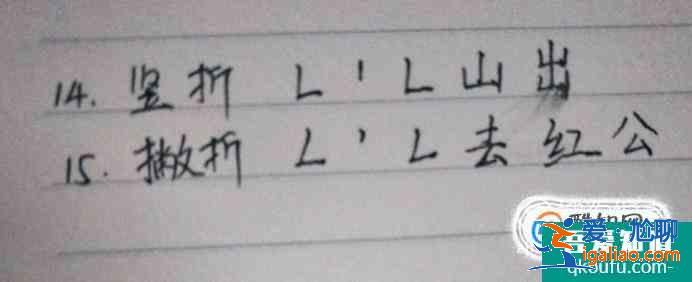 14. 竖折 ㄴ ' ㄴ 山 出
15. 撇折 ㄥ ' ㄥ 去 红 公
爱·尬聊
igaliao.com
qkoufu.com